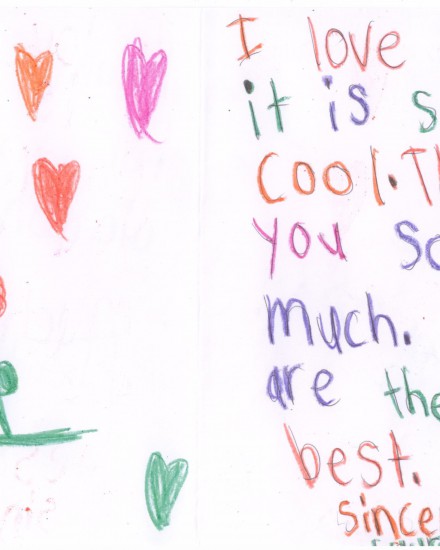 I love
it is s
cool. Th
you so
much.
are the
best.
sincer